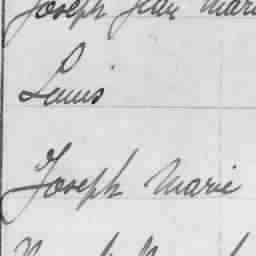 Joseph Jean Marie
Louis
Joseph Marie